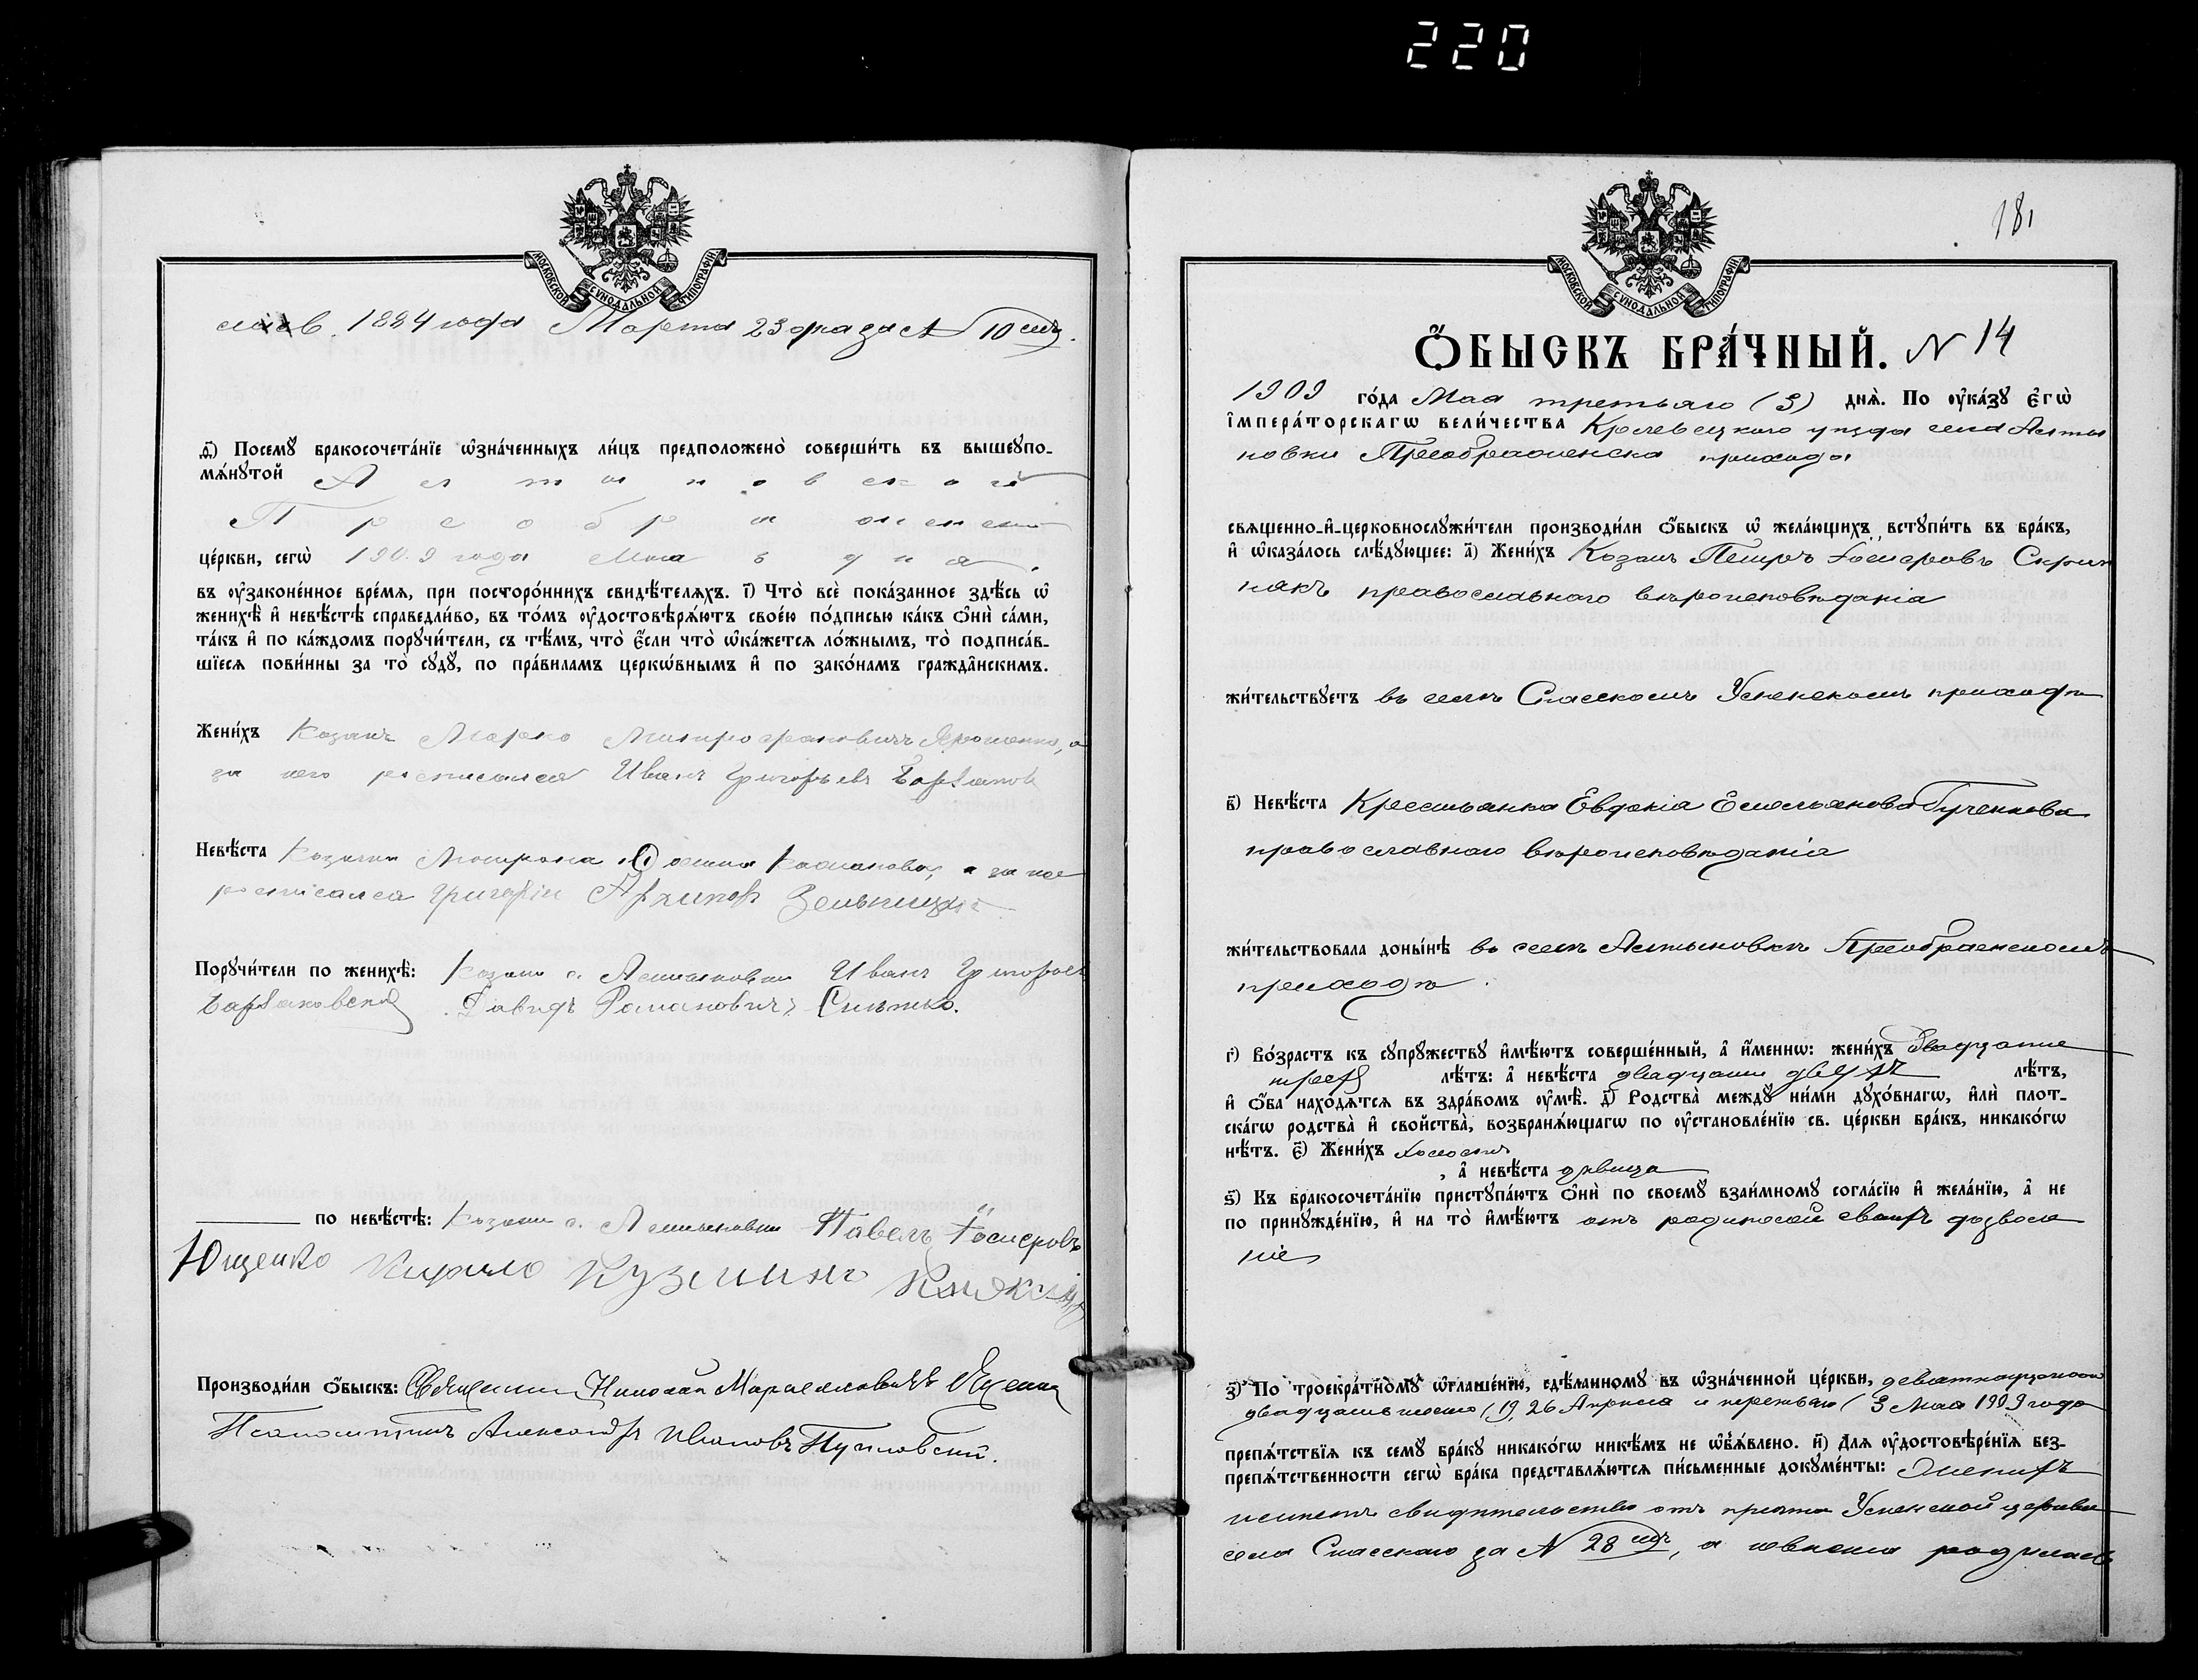 220
МОСКОВСКОЙ СѴНОДАЛЬНОЙ ТИПОГРАФІИ
1884 года Марта 23 дня за № 10 емъ.
д҃і) Посемꙋ̀ бракосочета́нїе ѡ҆зна́ченныхъ ли́цъ предположено̀ соверши́ть въ вышеꙋпо-
мѧ́нꙋтой Алтыновской
Преображенской
це́ркви, сегѡ̀ 1909 года Мая 3 дня,
въ ᲂу҆законе́нное вре́мѧ, при посторо́ннихъ свидѣ́телѧхъ. і҃) Что̀ всѐ пока́занное здѣ́сь ѡ҆
женихѣ̀ и҆ невѣ́стѣ справедли́во, въ то́мъ ᲂу҆достовѣрѧ́ютъ свое́ю по́дписью ка́къ ѻ҆нѝ са́ми,
та́къ и҆ по ка́ждомъ порꙋчи́тели, съ тѣ́мъ, что̀ є҆́сли что̀ ѡ҆ка́жетсѧ ло́жнымъ, то̀ подписа́в-
шїесѧ пови́нны за то̀ сꙋдꙋ̀, по пра́виламъ церкѡ́внымъ и҆ по зако́намъ гражда̑нскимъ.
Жени́хъ Козакъ Марко Митрофановичъ Ярошенко, а
за него росписался Иванъ Григорьевъ
Невѣ́ста Козачка а за нее
росписался Григорій Архипов
Порꙋчи́тели по женихѣ̀: Козаки с. Алтыновки Иванъ Григорьев
Давидъ Романовичъ
по невѣ́стѣ: Козаки с. Алтыновки Павелъ
Ющенко Кирило Кузминъ
Производи́ли ѻ҆́быскъ: Священникъ Николай
Псаломщикъ Александръ Ивановъ
181
МОСКОВСКОЙ СѴНОДАЛЬНОЙ ТИПОГРАФІИ
Ѻ҆́БЫСКЪ БРА́ЧНЫЙ. N 14
1909 го́да Мая третьяго (3) днѧ̀. По ᲂу҆ка́зꙋ є҆гѡ̀
і҆мпера́торскагѡ вели́чества Кролевецкаго уѣзда села Алты
новки Преображенска прихода
свѧщенно-и҆-церковнослꙋжи́тели производи́ли ѻ҆́быскъ ѡ҆ жела́ющихъ встꙋпи́ть въ бра́къ,
и҆ ѡ҆каза́лось слѣ́дꙋющее: а҃) Жени́хъ Козакъ Петръ
православнаго вѣроисповѣданія
жи́тельствꙋетъ въ селѣ Спасскомъ Успенскомъ приходѣ
в҃) Невѣ́ста Крестьянка Евдокія Емельянова
православнаго вѣроисповѣданія
жи́тельствовала доны́нѣ въ селѣ Алтыновкѣ Преображенскомъ
приходѣ.
г҃) Во́зрастъ къ сꙋпрꙋ́жествꙋ и҆мѣ́ютъ соверше́нный, а҆ и҆́менни: жени́хъ двадцати
трехъ лѣ́тъ: а҆ невѣ́ста двадцати двухъ лѣ́тъ,
и҆ ѻ҆́ба нахо́дѧтсѧ въ здра́вомъ ᲂу҆мѣ̀. д҃) Родства̀ междꙋ̀ ни́ми дꙋхо́внагѡ, и҆лѝ плот-
ска́гѡ родства̀ и҆ свойства̀, возбранѧ́ющагѡ по ᲂу҆становле́нїю св. це́ркви бра́къ, никако́гѡ
нѣ́тъ. є҃) Жени́хъ холостъ
, а҆ невѣ́ста дѣвица
ѕ҃) Къ бракосочета́нїю пристꙋпа́ютъ ѻ҆нѝ по своемꙋ̀ взаи́мномꙋ согла́сїю и҆ жела́нїю, а҆ не
по принꙋжде́нїю, и҆ на то̀ и҆мѣ́ютъ отъ родителей своихъ дозволе
ніе
з҃) По троекра́тномꙋ ѡ҆глаше́нїю, сдѣ́ланномꙋ въ ѡ҆зна́ченной це́ркви, девятнадцатаго
двадцать шестаго (19, 26 Апрѣля и третьяго (3 Мая 1909 года
препѧ́тствїѧ къ семꙋ̀ бра́кꙋ никако́гѡ никѣ́мъ не ѡ҆б̾ѧ́влено. и҃) Длѧ ᲂу҆достовѣре́нїѧ без-
препѧ́тственности сегѡ̀ бра́ка представлѧ́ютсѧ пи́сьменные докꙋме́нты: Женихъ
имѣетъ свидѣтельство отъ причта Успенской церкви
села Спасскаго за N 28 емъ, а невѣста родилась